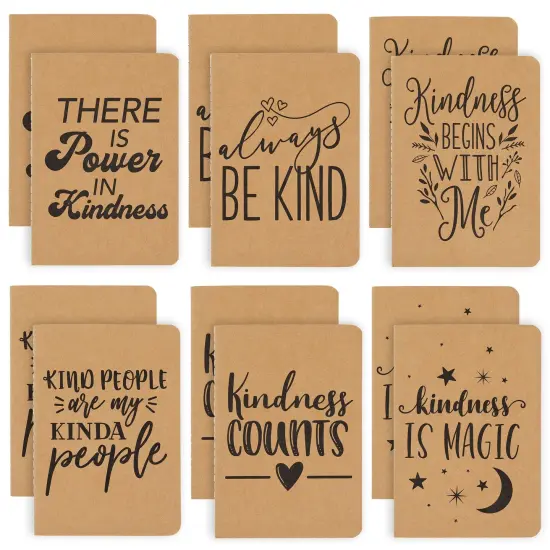 THERE
IS
Power
IN
Kindness
always
BE KIND
Kindness
Kindness
BEGINS
WITH
Me
KIND PEOPLE
are my
KINDA
people
Kindness
COUNTS
kindness
IS MAGIC